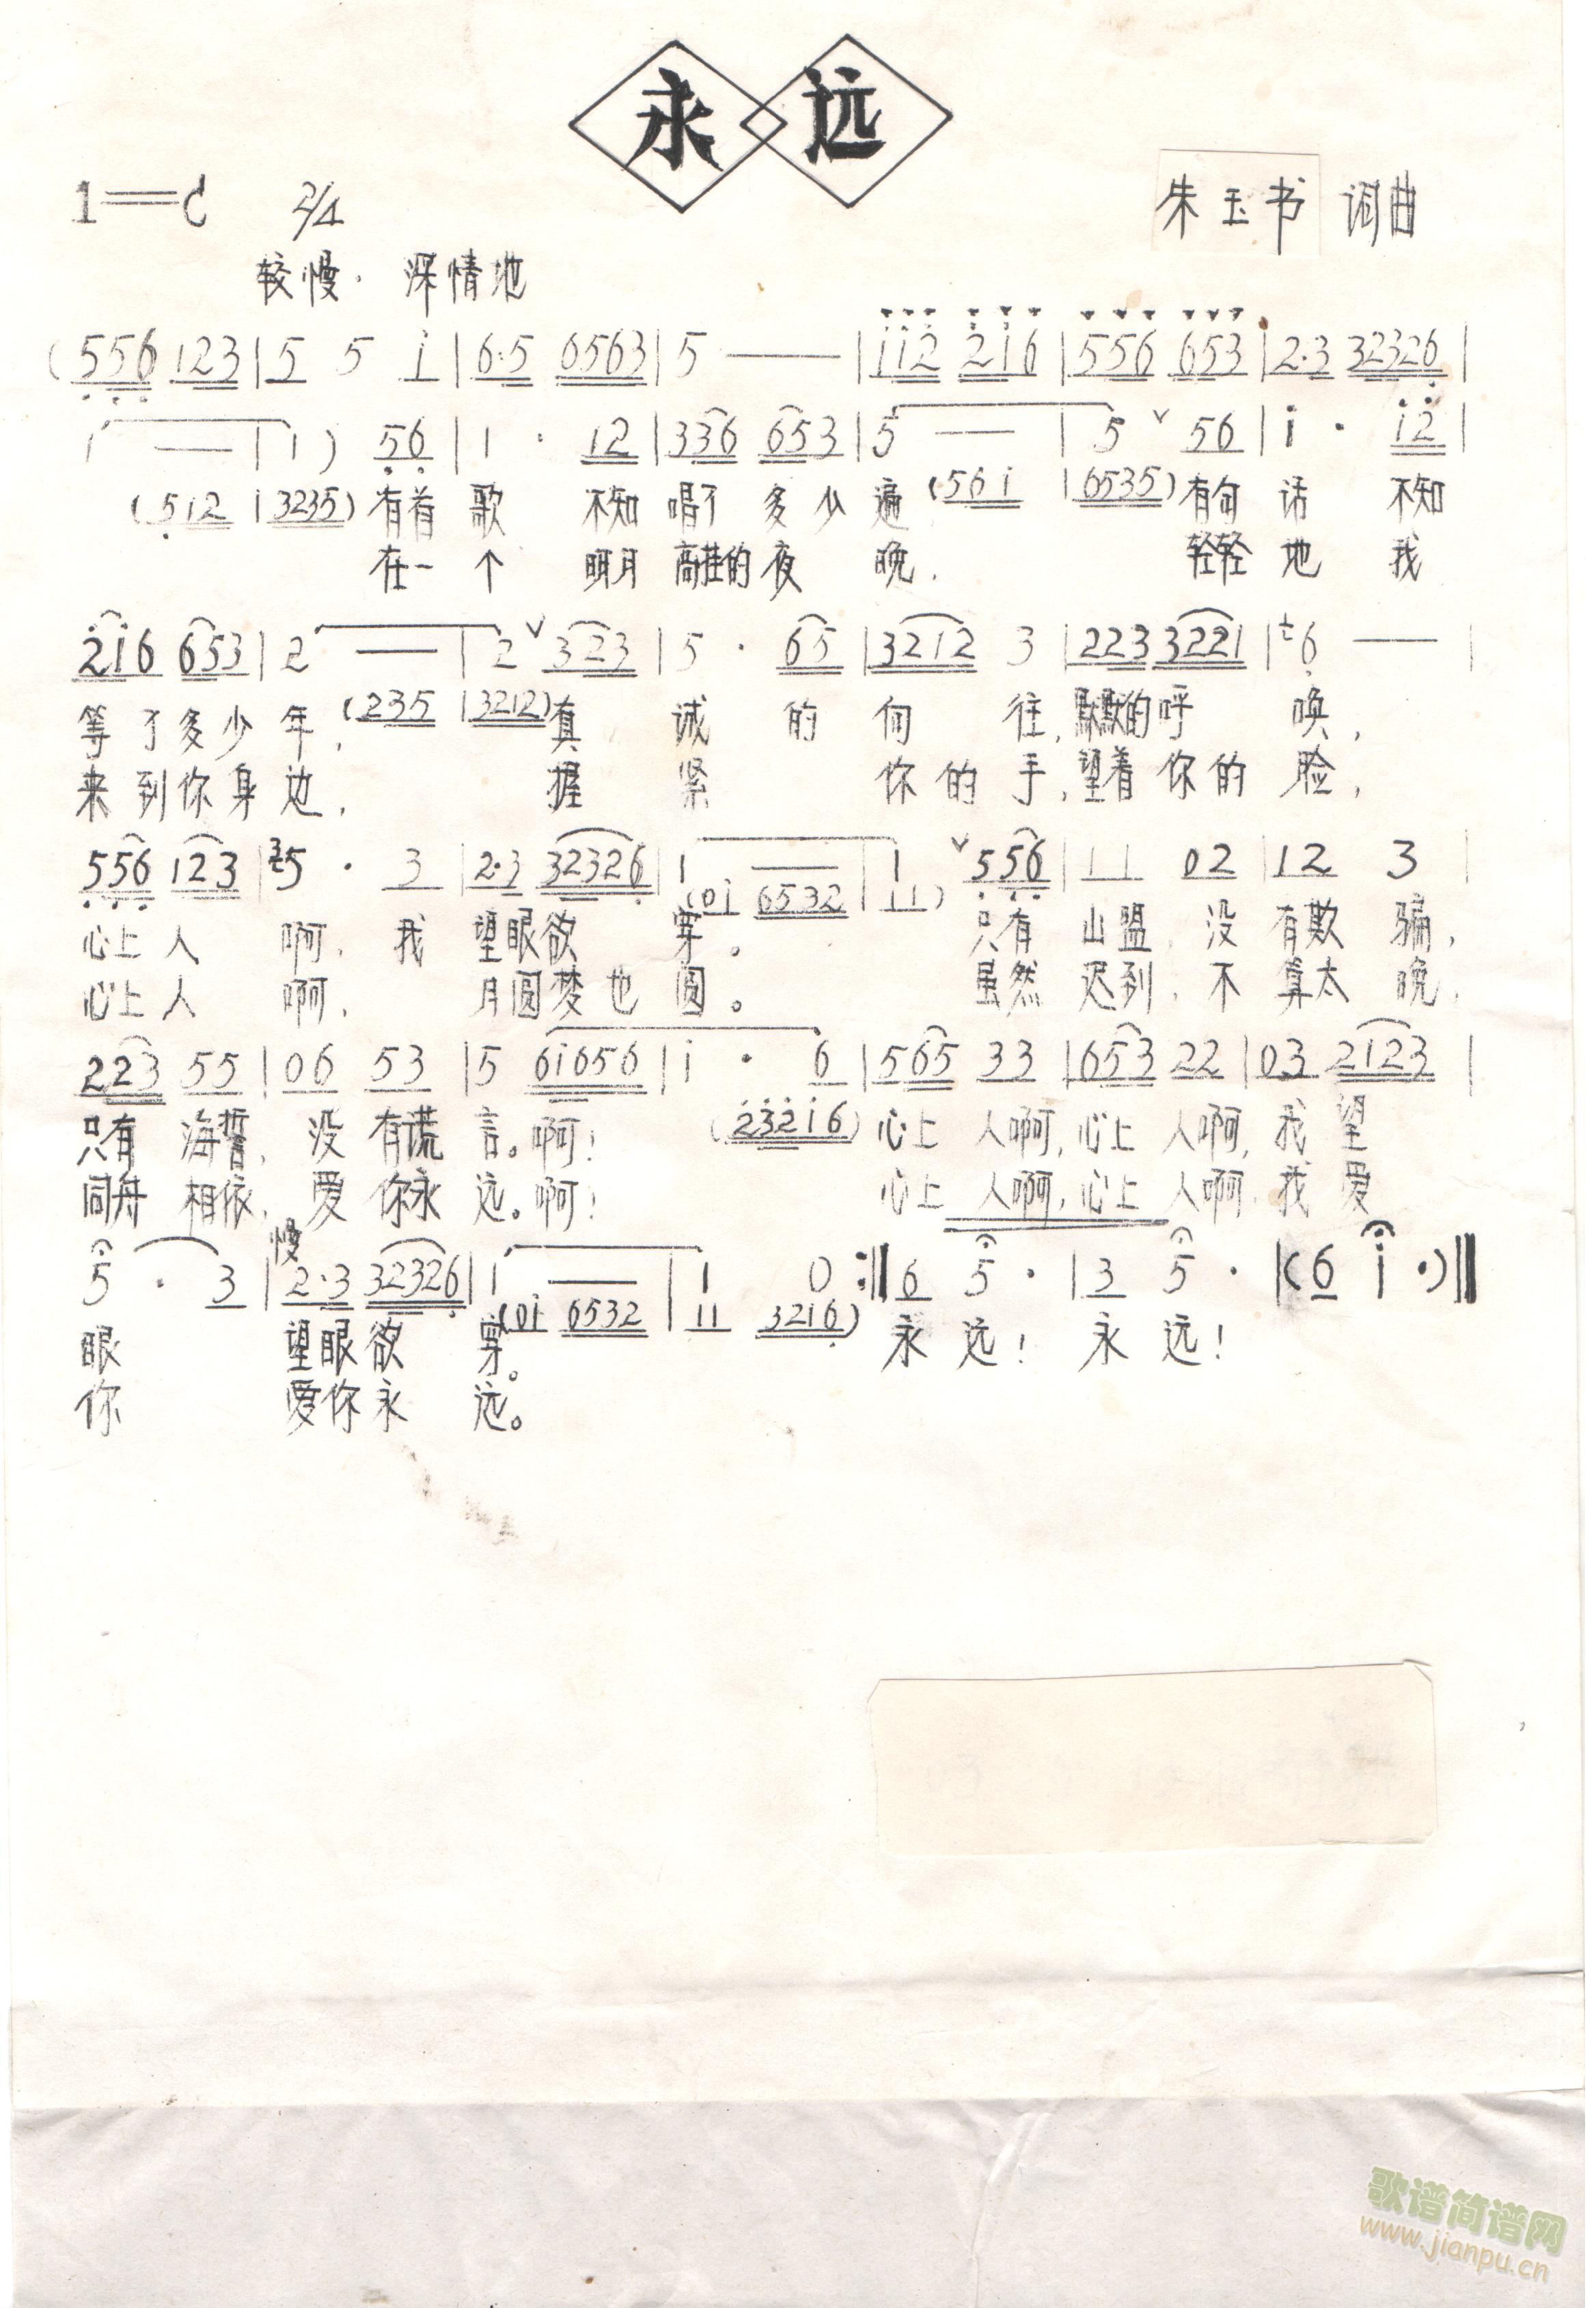 永远
1=C 2/4 朱玉书 词曲
较慢. 深情地
(556 123 | 5 5 i | 6·5 6563 | 5 — | i̇i̇2̇ 2̇i̇6 | 556 653 | 2·3 32326 |
1 — | 1 ) 56 | 1 · 12 | 336 653 | 5 — | 5 ˅ 56 | i̇ · i̇2̇ |
(5 1 2 | 3235) 有首 歌 不知 唱了 多少 遍 (56i | 6535) 有句 话 不知
在一 个 明月 高挂的 夜 晚. 轻轻 地 我
2̇i̇6 653 | 2 — | 2 ˅ 323 | 5 · 65 | 3212 3 | 223 3221 | 6 — |
等了多少年, (235 | 3212) 真 诚 的 向 往, 默默的呼 唤,
来到你身边, 握 紧 你的手, 望着你的脸,
556 123 | 5 · 3 | 2·3 32326 | 1 — | 1 ˅ 556 | 11 02 | 12 3 |
(0i 6532 | 11)
心上人 啊, 我 望眼欲 穿。 只有 山盟, 没 有欺 骗,
心上人 啊, 月圆梦也 圆。 虽然 迟到, 不 算太 晚,
223 55 | 06 53 | 5 6i656 | i · 6 | 565 33 | 653 22 | 03 2123 |
只有 海誓, 没 有谎 言。啊! (2̇3̇2̇i̇6) 心上 人啊, 心上 人啊, 我 望
同舟 相依, 爱 你永 远。啊! 心上 人啊, 心上 人啊, 我 爱
慢
5 · 3 | 2·3 32326 | 1 — | 1 0 :‖ 6 5 · | 3 5 · | (6 i ·) ‖
眼 望眼欲 穿。 (0i 6532 | 11 3216) 永 远! 永 远!
你 爱你永 远。
歌谱简谱网
www.jianpu.cn